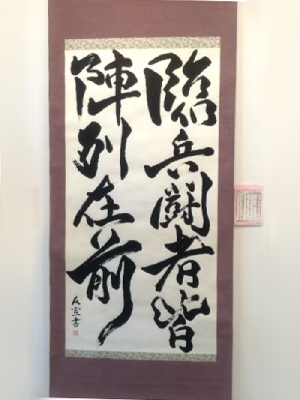 臨兵闘者皆
陣列在前